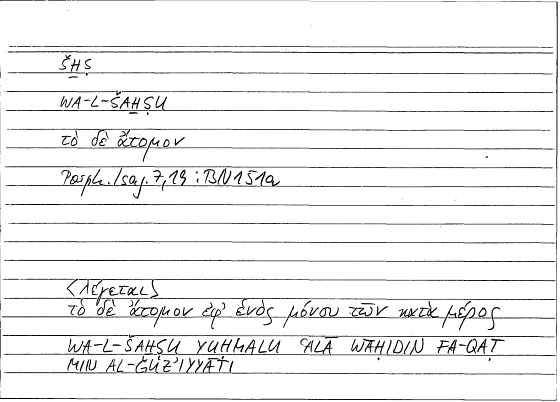 ŠẖṢ
WA-L-ŠAẖṢU
τὸ δὲ ἄτομον
Porph. Isag. 7,19 : BN151a
<λέγεται>
τὸ δὲ ἄτομον ἐφ' ἑνὸς μόνου τῶν κατὰ μέρος
WA-L-ŠAẖṢU YUḤMALU ʿALĀ WĀḤIDIN FA-QAṬ
MIN AL-ǦUZʾIYYĀTI